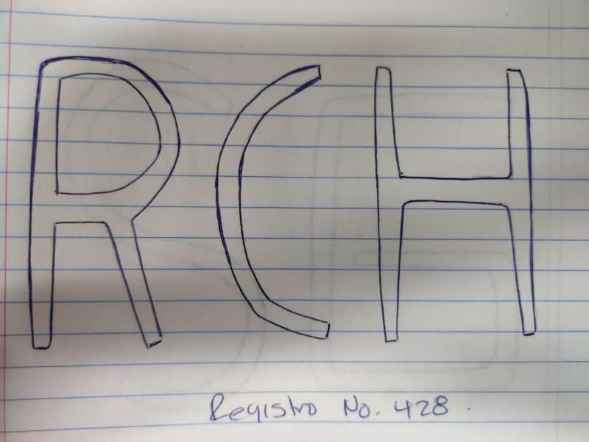 RCH
Registro No. 428.